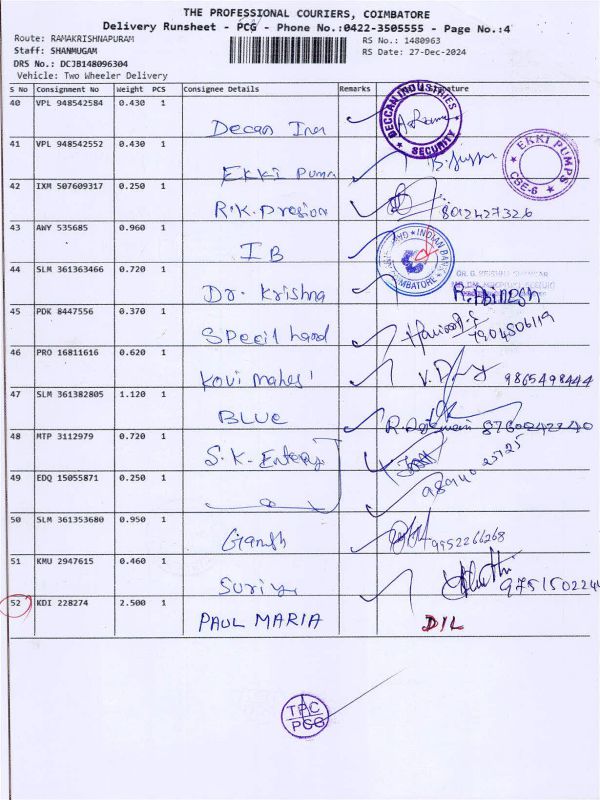 THE PROFESSIONAL COURIERS, COIMBATORE
Delivery Runsheet - PCG - Phone No.:0422-3505555 - Page No.:4
Route: RAMAKRISHNAPURAM RS No.: 1480963
Staff: SHANMUGAM RS Date: 27-Dec-2024
DRS No.: DCJB148096304
Vehicle: Two Wheeler Delivery
S No Consignment No Weight PCS Consignee Details Remarks Signature
40 VPL 948542584 0.430 1
Deccan Indu
DECCAN INDUSTRIES
SECURITY
41 VPL 948542552 0.430 1
EKKI Pump
EKKI PUMPS
CSE-6
42 IXM 507609317 0.250 1
R.K. Presion 8012427326
43 AWY 535685 0.960 1
IB
INDIAN BANK
COIMBATORE
44 SLM 361363466 0.720 1
Dr. Krishna R. Abinesh
45 PDK 8447556 0.370 1
Specil hand 7904506119
46 PRO 16811616 0.620 1
Kovi mahes 9865498444
47 SLM 361382805 1.120 1
BLUE 8760242240
48 MTP 3112979 0.720 1
S.K. Enterp
49 EDQ 15055871 0.250 1
98940 25725
50 SLM 361353680 0.950 1
Ganesh 9952266268
51 KMU 2947615 0.460 1
Suriya
52 KDI 228274 2.500 1
PAUL MARIA DIL
TPC
PCG